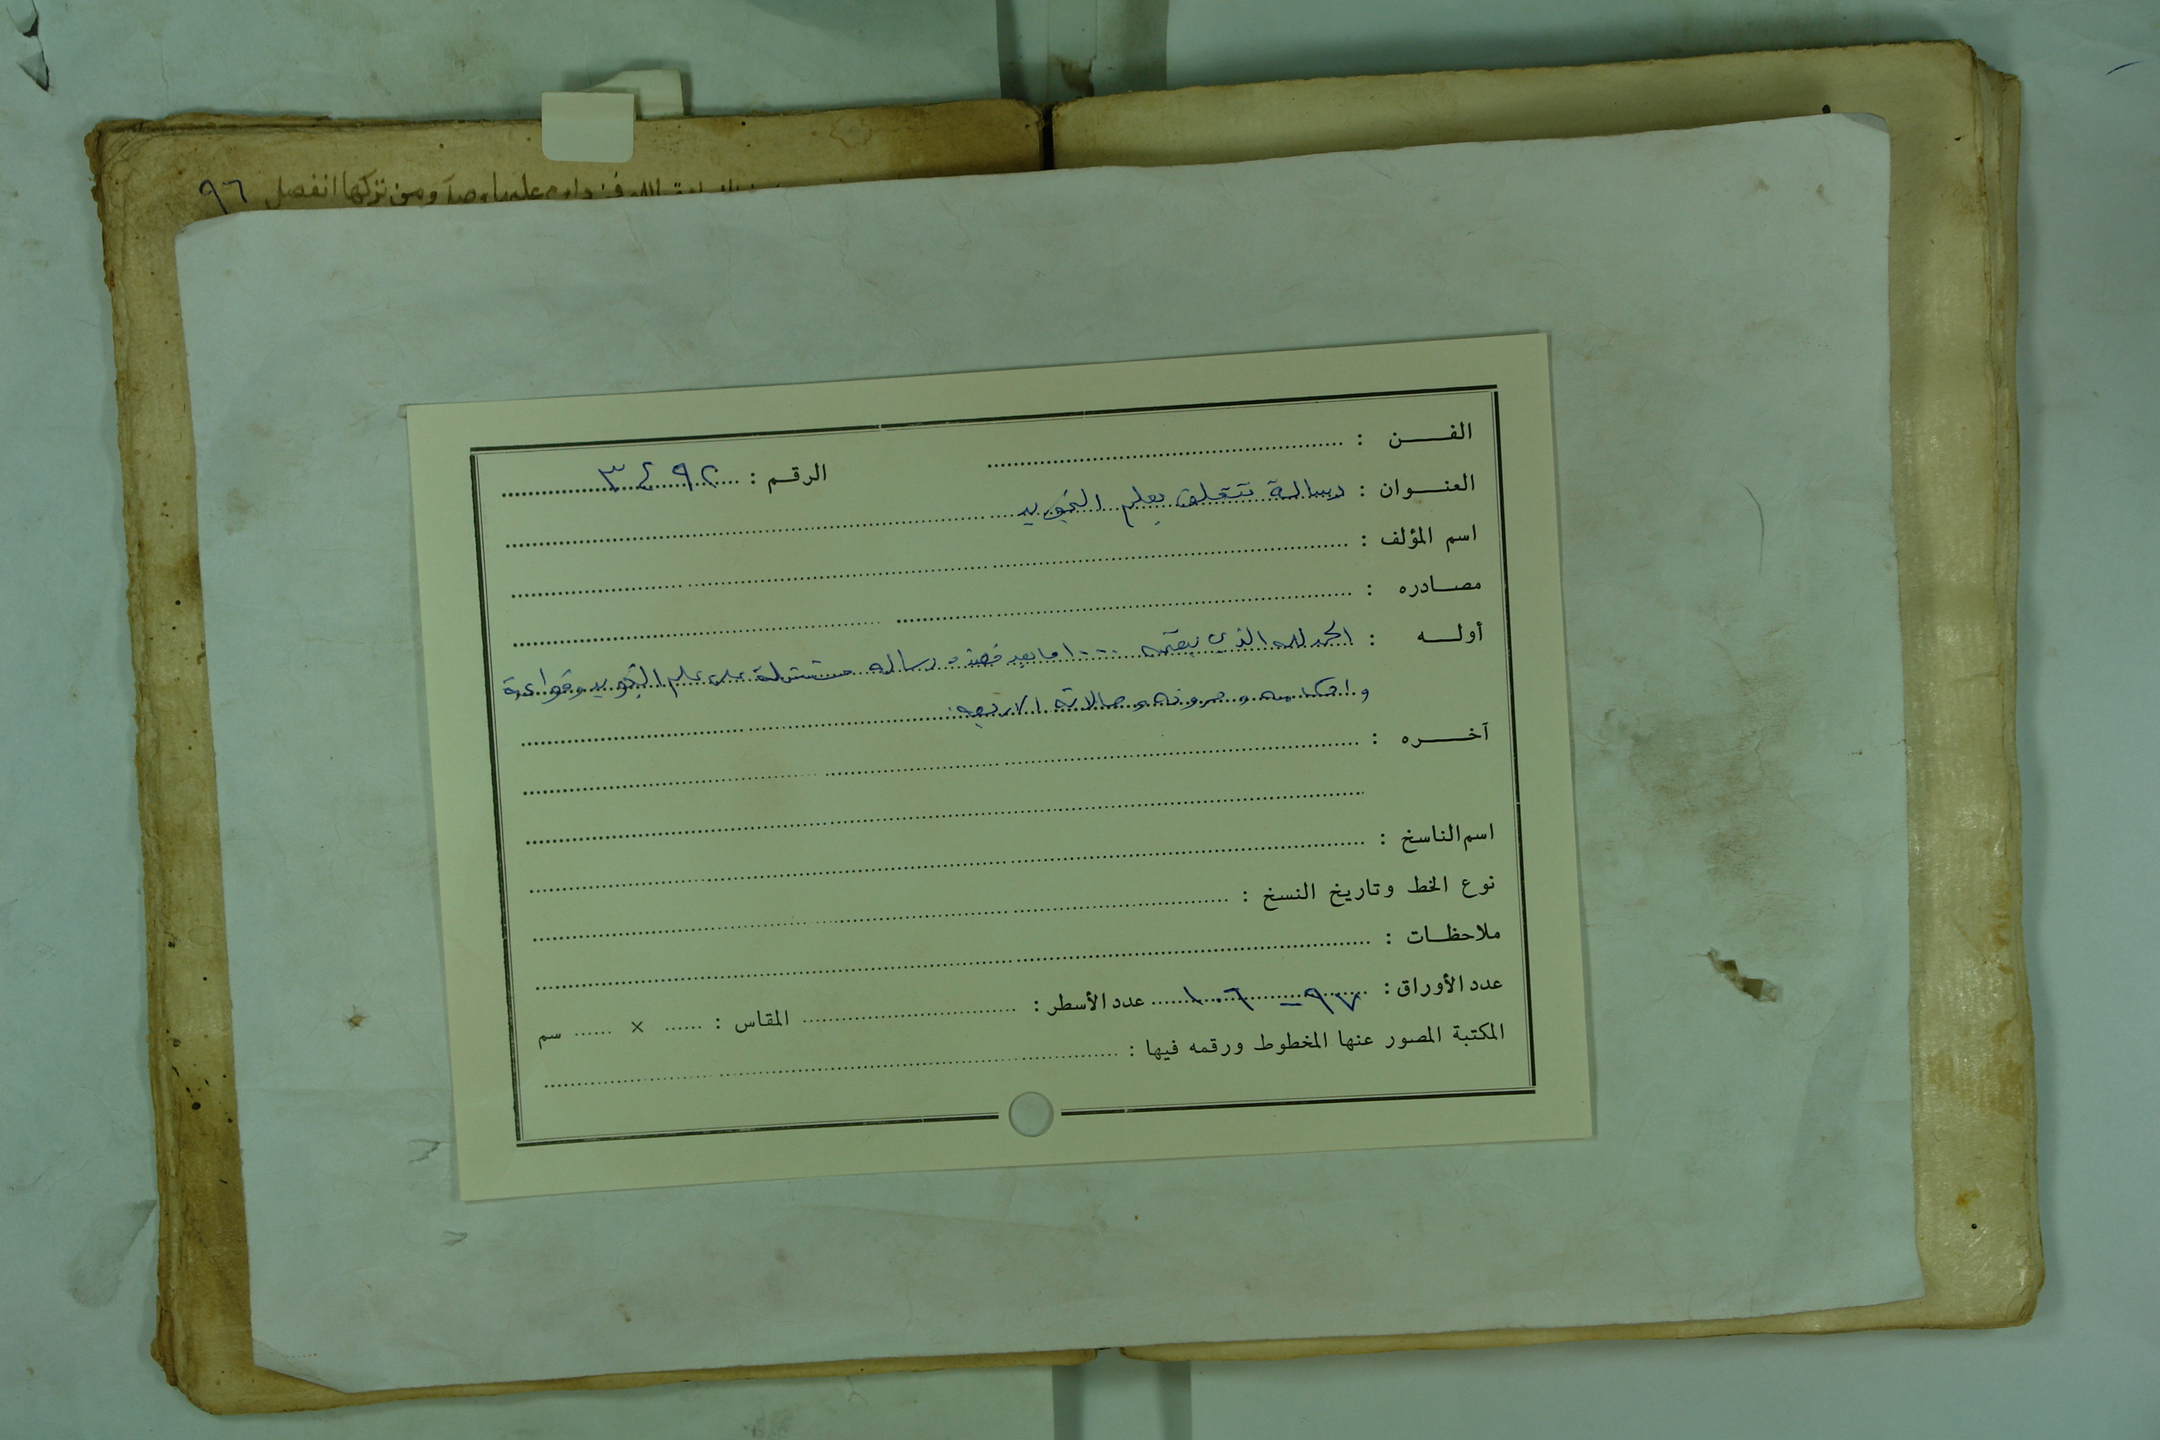 ٩٦ فمن داوم عليها وصل ومن تركها انفصل
الفـــن :
الرقم : ٣٤٩٢
العنــوان : رسالة تتعلق بعلم التجويد
اسم المؤلف :
مصــادره :
أولـــه : الحمد لله الذي بنعمته ... اما بعد فهذه رسالة مشتملة على علم التجويد وقواعده
و احكامه و حروفه و حالاته الاربعة.
آخـــره :
اسم الناسخ :
نوع الخط وتاريخ النسخ :
ملاحظــات :
عدد الأوراق : ٩٧ - ١٠٦ عدد الأسطر : المقاس : × سم
المكتبة المصور عنها المخطوط ورقمه فيها :